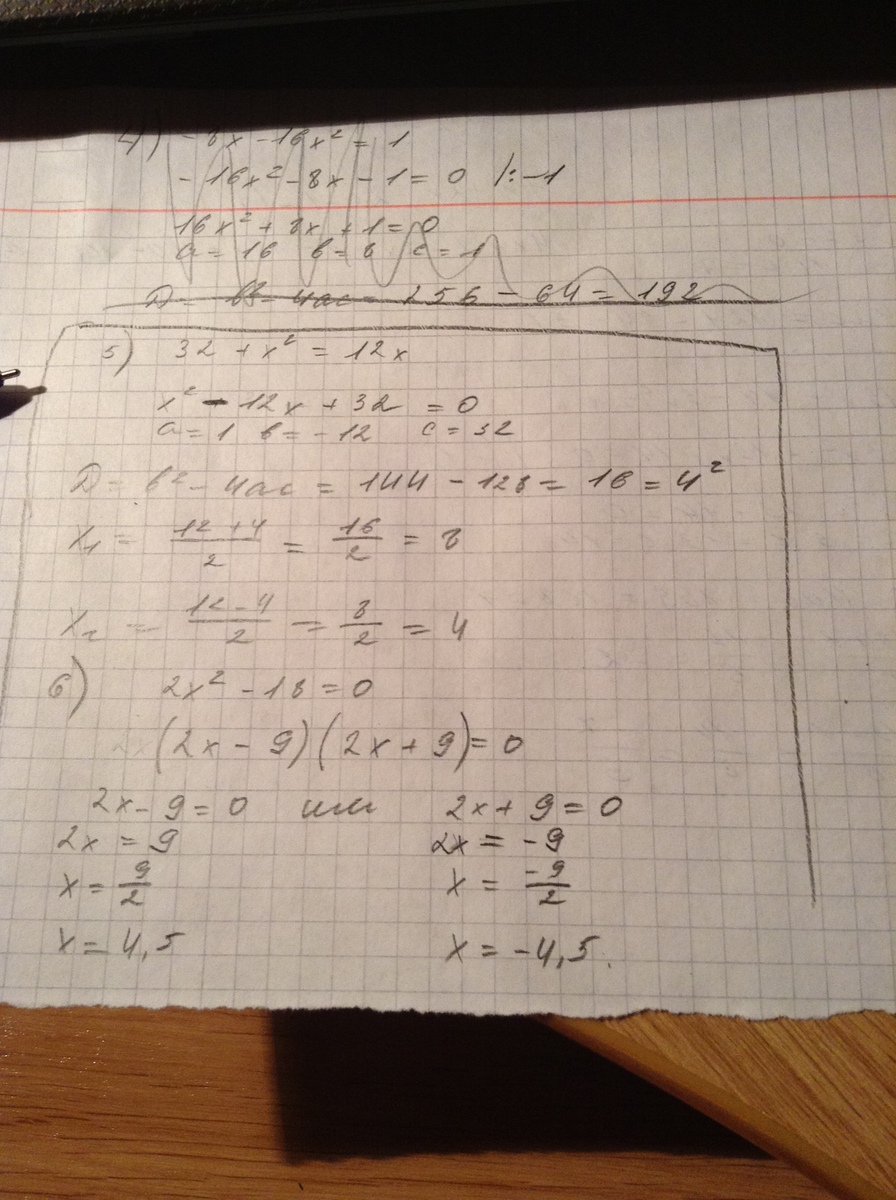 4) - 8x - 16x² = 1
- 16x² - 8x - 1 = 0 /: -1
16x² + 8x + 1 = 0
a = 16 в = 8 c = 1
D = в² - 4ac = 256 - 64 = 192
5) 32 + x² = 12x
x² - 12x + 32 = 0
a = 1 в = -12 c = 32
D = в² - 4ac = 144 - 128 = 16 = 4²
x₁ = (12 + 4)/2 = 16/2 = 8
x₂ = (12 - 4)/2 = 8/2 = 4
6) 2x² - 18 = 0
(2x - 9)(2x + 9) = 0
2x - 9 = 0 или 2x + 9 = 0
2x = 9 2x = -9
x = 9/2 x = -9/2
x = 4,5 x = -4,5.